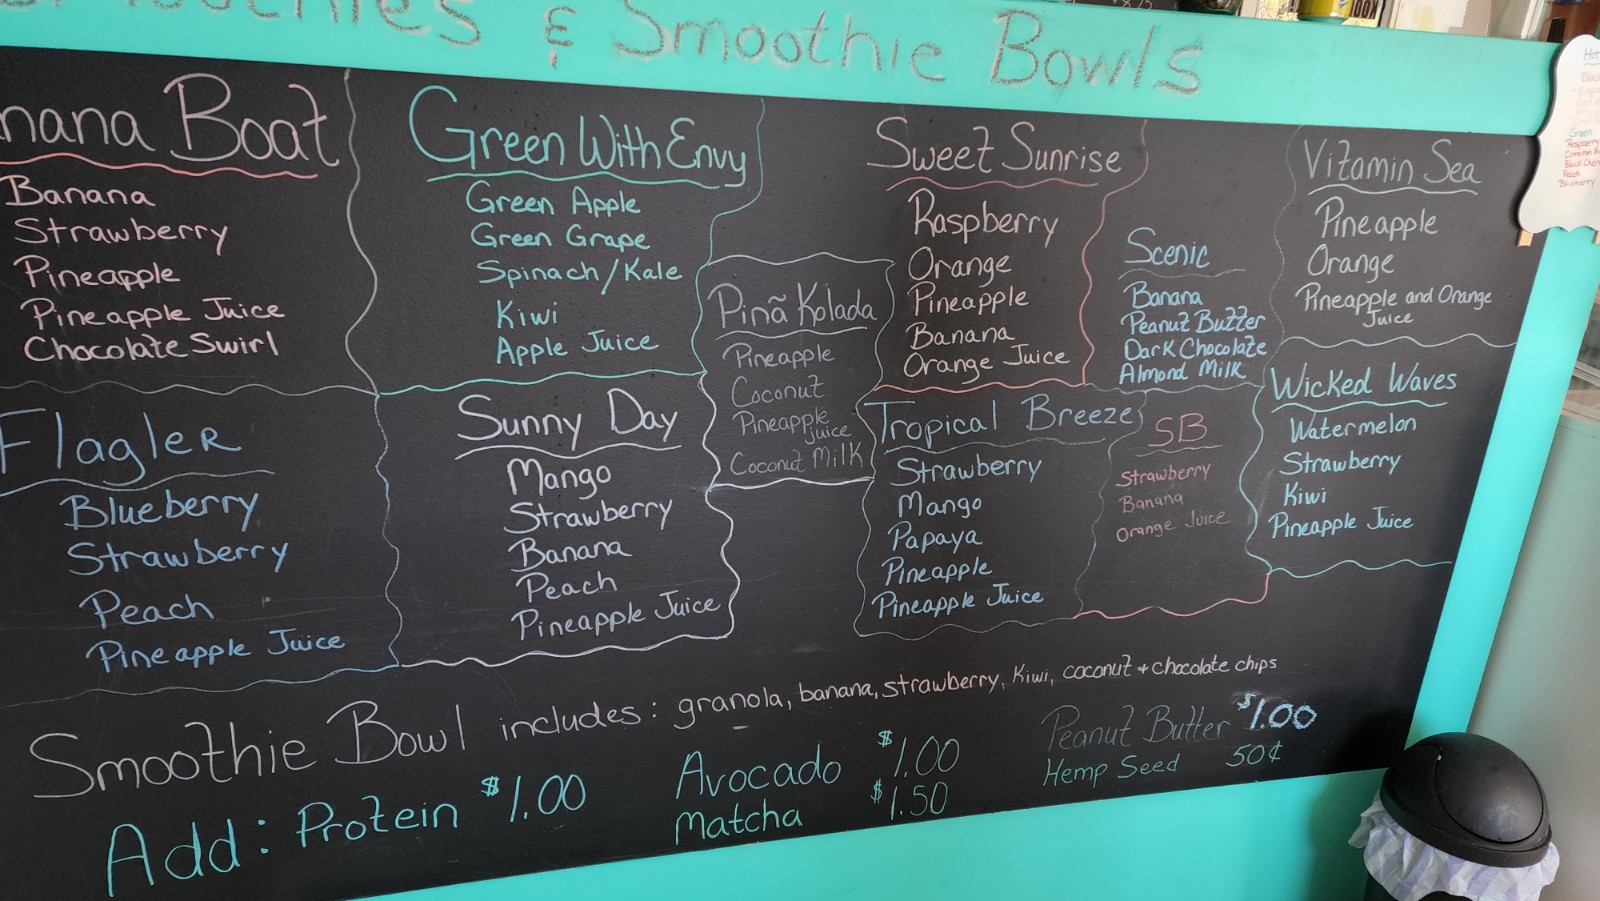 & Smoothie Bowls
Boat
Banana
Strawberry
Pineapple
Pineapple Juice
Chocolate Swirl
Green With Envy
Green Apple
Green Grape
Spinach/Kale
Kiwi
Apple Juice
Piñã Kolada
Pineapple
Coconut
Pineapple
juice
Coconut Milk
Sweet Sunrise
Raspberry
Orange
Pineapple
Banana
Orange Juice
Scenic
Banana
Peanut Butter
Dark Chocolate
Almond Milk
Vitamin Sea
Pineapple
Orange
Pineapple and Orange
Juice
Flagler
Blueberry
Strawberry
Peach
Pineapple Juice
Sunny Day
Mango
Strawberry
Banana
Peach
Pineapple Juice
Tropical Breeze
Strawberry
Mango
Papaya
Pineapple
Pineapple Juice
SB
Strawberry
Banana
Orange Juice
Wicked Waves
Watermelon
Strawberry
Kiwi
Pineapple Juice
Smoothie Bowl includes: granola, banana, strawberry, Kiwi, coconut + chocolate chips
Add: Protein $1.00
Avocado $1.00
Matcha $1.50
Peanut Butter $1.00
Hemp Seed 50¢
Green
Raspberry
Peach
Blueberry